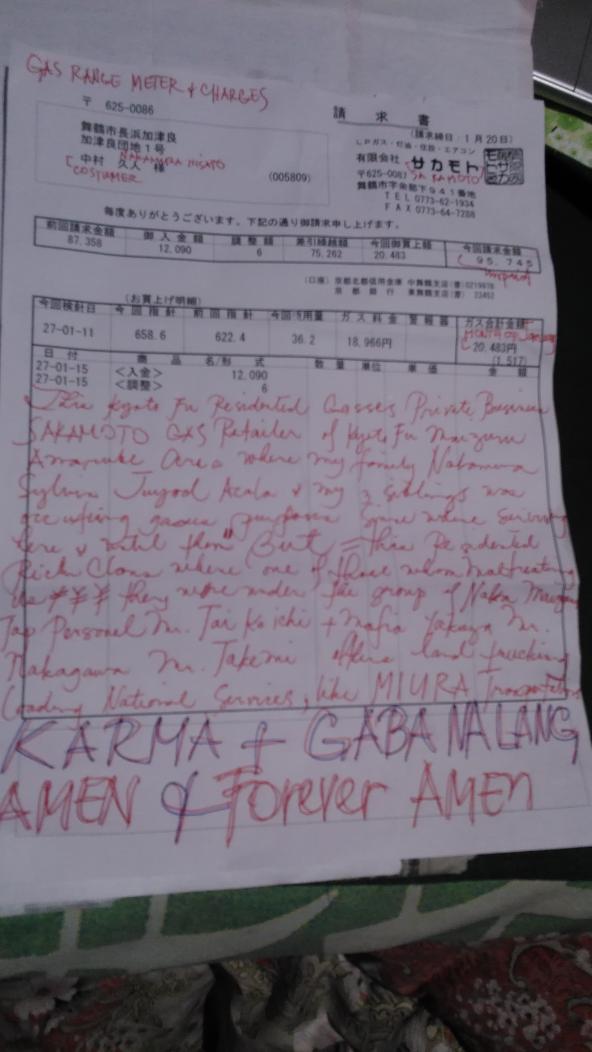 GAS RANGE METER & CHARGES
〒 625-0086
請 求 書
(請求締日：1月20日)
舞鶴市長浜加津良
加津良団地1号
中村 久人 様
NAKAMURA HISATO
[COSTUMER
(005809)
LPガス・灯油・住設・エアコン
有限会社 サカモト
SAKAMOTO
〒625-0087
舞鶴市字余部下941番地
TEL 0773-62-1934
FAX 0773-64-7288
毎度ありがとうございます。下記の通り御請求申し上げます。
前回請求金額 御入金額 調整額 差引繰越額 今回御買上額 今回請求金額
87,358 12,090 6 75,262 20,483 95,745
(口座) 京都北都信用金庫 中舞鶴支店(普)0219878
京 都 銀 行 東舞鶴支店(普) 23452
(お買上げ明細)
今回検針日 今回指針 前回指針 今回ご用量 ガス料金 警報器 ガス合計金額
MONTH OF
27-01-11 658.6 622.4 36.2 18,966円 20,483円
(1,517)
日 付 商 品 名/形 式 数 量 単位 単 価 金 額
27-01-15 <入金> 12,090
27-01-15 <調整> 6
Kyoto Fu Residented Gasses Private Business
SAKAMOTO GAS Retailer of Kyoto Fu Maizuru
Area where my family Nakamura
Sylvia Acala & my 3 siblings was
here & until then" But = this Residented
Rich Class where one of those whom Maltreating
us ¥ ¥ ¥ they were under the group of Naka Maizuru
Top Personel Mr. Tai Koichi + Mafia Yakuza Mr.
Nakagawa Mr. Takemi land trucking
Loading National Services, like MIURA Transportation
KARMA + GABA NALANG
AMEN & Forever AMEN